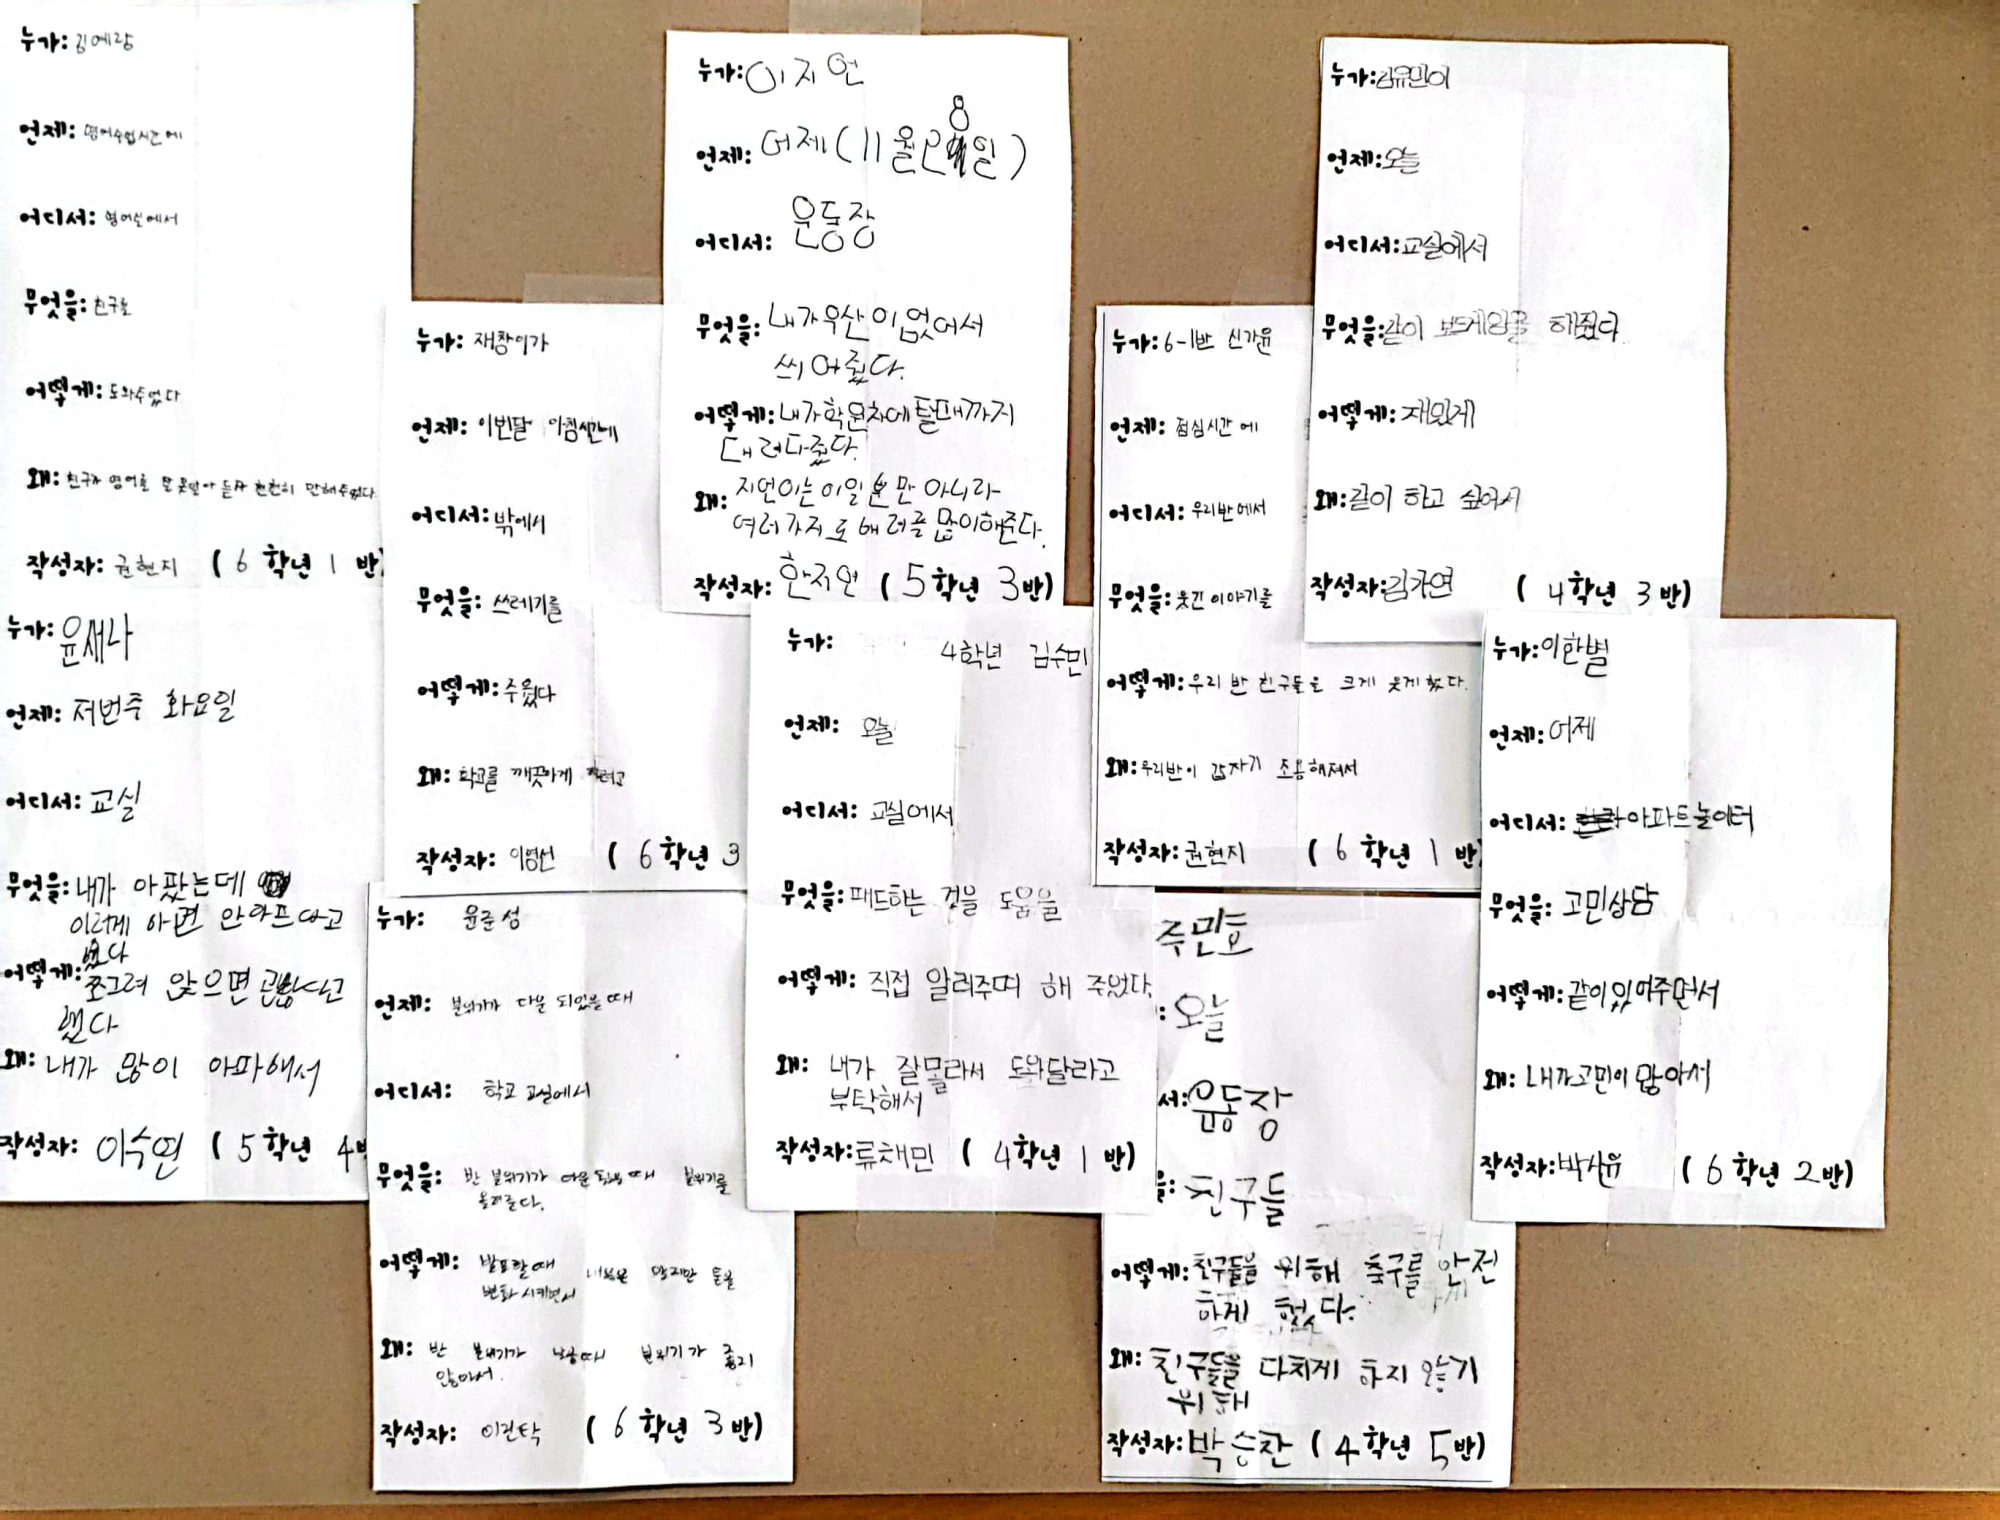 누가: 김예랑
언제: 영어수업시간에
어디서: 영어실에서
무엇을: 친구를
어떻게: 도와주었다
왜: 친구가 영어를 잘 못알아 듣자 천천히 말해주었다.
작성자: 권현지 ( 6 학년 1 반)
누가: 윤새나
언제: 저번주 화요일
어디서: 교실
무엇을: 내가 아팠는데
이러게 하면 안아프다고
했다
어떻게: 쪼그려 앉으면 괜찮다고
했다
왜: 내가 많이 아파해서
작성자: 이수연 ( 5 학년 4 반
누가: 재창이가
언제: 이번달 아침시간에
어디서: 밖에서
무엇을: 쓰레기를
어떻게: 주웠다
왜: 학교를 깨끗하게 하려고
작성자: 이영선 ( 6 학년 3
누가: 윤준성
언제: 분위기가 다운 되있을 때
어디서: 학교 교실에서
무엇을: 반 분위기가 다운 됬을 때 분위기를
올려준다.
어떻게: 발표할때 내용은 맞지만 톤을
변화 시키면서
왜: 반 분위기가 낮을때 분위기가 좋지
않아서.
작성자: 이건탁 ( 6 학년 3 반)
누가: 이지언
언제: 어제 (11월28일)
어디서: 운동장
무엇을: 내가우산이없어서
씌어줬다.
어떻게: 내가학원차에탈때까지
데려다줬다.
왜: 지언이는 이일 뿐만 아니라
여러가지로 배려를 많이해준다.
작성자: 한지연 ( 5 학년 3 반)
누가: 4학년 김수민
언제: 오늘
어디서: 교실에서
무엇을: 패드하는 것을 도움을
어떻게: 직접 알려주며 해 주었다.
왜: 내가 잘몰라서 도와달라고
부탁해서
작성자: 류채민 ( 4 학년 1 반)
누가: 6-1반 신가윤
언제: 점심시간에
어디서: 우리반에서
무엇을: 웃긴 이야기를
어떻게: 우리 반 친구들을 크게 웃게 했다.
왜: 우리반이 갑자기 조용해져서
작성자: 권현지 ( 6 학년 1 반)
주민호
: 오늘
서: 운동장
을: 친구들
어떻게: 친구들을 위해 축구를 안전
하게 했다.
왜: 친구들을 다치게 하지 않기
위해
작성자: 박승찬 ( 4 학년 5 반)
누가: 김유민이
언제: 오늘
어디서: 교실에서
무엇을: 같이 보드게임을 해줬다.
어떻게: 재밌게
왜: 같이 하고 싶어서
작성자: 김가연 ( 4 학년 3 반)
누가: 이한별
언제: 어제
어디서: 아파트놀이터
무엇을: 고민상담
어떻게: 같이있어주면서
왜: 내가고민이많아서
작성자: ( 6 학년 2 반)